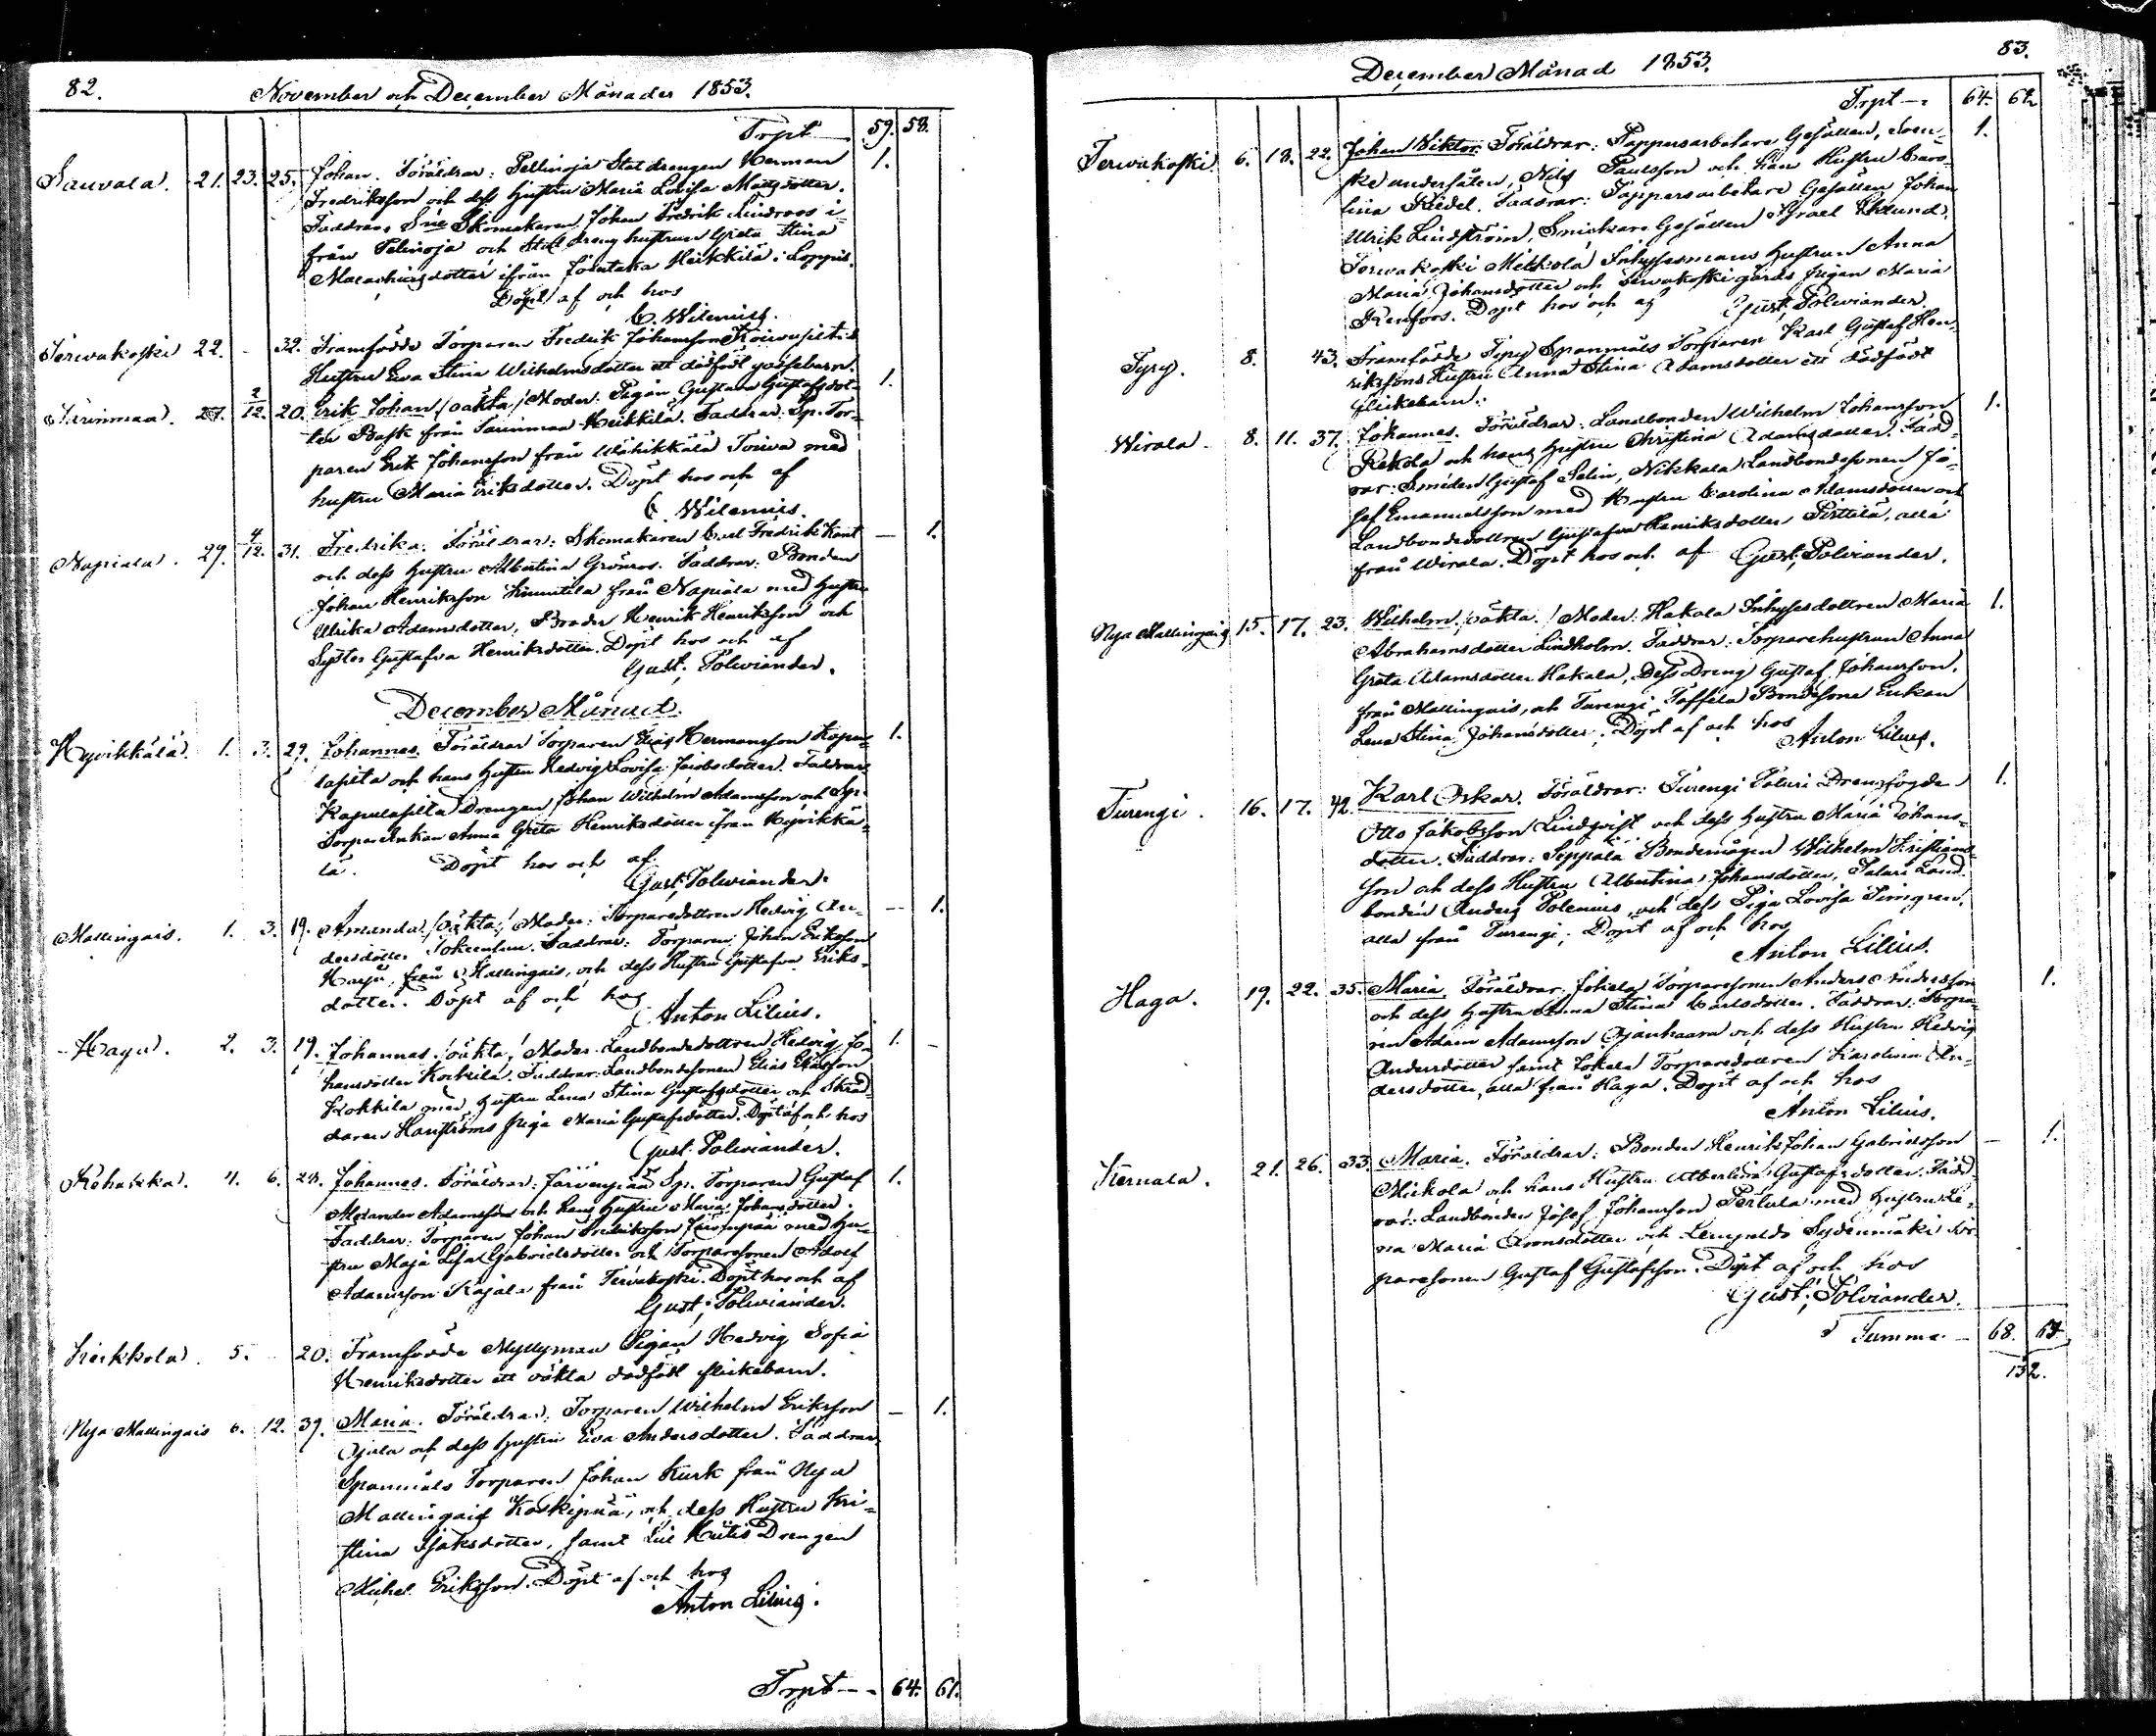 82.
November och December Månader 1853.
Trpt 59. 58.
Sauvala. 21. 23. 25. Johan. Föräldrar: Pellinoja Statdrängen Herman 1.
Fredriksson och dess hustru Maria Lovisa Mattsdotter.
Faddrar: Skomakaren Johan Fredrik Lindroos i-
från Pelinoja och Statdräng hustrun Greta Stina
ifrån Heikkilä i Loppis.
Döpt af och hos
C. Wilenius.
Terwakoski 22. - 32. Framfödde Torparen Fredrik Johansson
Hustru Eva Stina Wilhelmsdotter ett dödfödt gossebarn.
27. 2/12. 20. Erik Johan /oäkta/ Moder: Pigan Gustava Gustafsdot- 1.
ter Rask från Heikkilä. Faddrar: Sp. Tor-
paren Erik Johansson från Toiva med
hustru Maria Eriksdotter. Döpt hos och af
C. Wilenius.
Napiala. 29. 4/12. 31. Fredrika. Föräldrar: Skomakaren Carl Fredrik Kant — 1.
och dess hustru Albertina Grönroos. Faddrar: Bonden
Johan Henriksson från Napiala med hustru
Ulrika Adamsdotter, Broder Henrik Henriksson och
Syster Gustafva Henriksdotter. Döpt hos och af
Gust. Polviander.
December Månad.
Hyvikkälä. 1. 3. 29. Johannes. Föräldrar Torparen Elias Hermansson Kapu- 1.
lasilta och hans hustru Hedvig Lovisa Jacobsdotter. Faddrar:
Kapulasilta Drängen Johan Wilhelm Adamsson och Sp.
Torpar Enkan Anna Greta Henriksdotter ifrån Hyvikkä-
lä. Döpt hos och af
Gust. Polviander.
Mallingais. 1. 3. 19. Amanda /oäkta/ Moder: Torparedottren Hedvig An- — 1.
dersdotter Faddrar: Torparen Johan Eriksson
Harju, från Mallingais, och dess Hustru Gustafva Eriks-
dotter. Döpt af och hos
Anton Lilius.
Haga. 2. 3. 19. Johannes. /oäkta/ Moder: Landbondedottren Hedvig Jo- 1. -
hansdotter Kokkila. Faddrar: Landbondesonen Elias Eliasson
Kokkila med hustru Lena Stina Gustafsdotter och Skräd-
daren Hanströms piga Maria Gustafsdotter. Döpt af och hos
Gust. Polviander.
Rehakka. 4. 6. 28. Johannes. Föräldrar: Järvenpää Sp. Torparen Gustaf 1.
Alexander Adamsson och hans hustru Maria Johansdotter.
Faddrar: Torparen Johan Fredriksson Järvenpää med hu-
stru Maja Lisa Gabrielsdotter och Torparesonen Adolf
Adamsson Kajala från Terwakoski. Döpt hos och af
Gust. Polviander.
Heikkola. 5. 20. Framfödde Myllymaa Pigan Hedvig Sofia
Henriksdotter ett oäkta dödfödt flickebarn.
Nya Mallingais 6. 12. 39. Maria. Föräldrar: Torparen Wilhelm Eriksson — 1.
Ojala och dess hustru Eva Andersdotter. Faddrar:
Spannmåls Torparen Johan Kurk från Nya
Mallingais Koskipää, och dess Hustru Kri-
stina Isaksdotter, samt Drängen
Michel Eriksson. Döpt af och hos
Anton Lilius.
Trpt — 64. 61.
December Månad 1853.
83.
Trpt — 64. 62
Terwakoski. 6. 18. 22. Johan Viktor. Föräldrar: Pappersarbetare Gesällen, Sven- 1.
ske undersåten, Nils Paulsson och hans Hustru Caro-
lina Riedel. Faddrar: Pappersarbetare Gesällen Johan
Ulrik Lindström, Snickare Gesällen Israel Eklund,
Terwakoski Mikkola Inhysesmans hustrun Anna
Maria Johansdotter och Terwakoski gårds pigan Maria
Renfors. Döpt hos och af Gust. Polviander.
Syry. 8. 43. Framfödde Syry Spanmåls Torparen Karl Gustaf Hen-
rikssons Hustru Anna Stina Adamsdotter ett dödfödt
flickebarn.
Wirala. 8. 11. 37. Johannes. Föräldrar: Landbonden Wilhelm Johansson 1.
Rekola och hans hustru Christina Adamsdotter. Fadd-
rar: Smeden Gustaf Salin, Nikkala Landbondesonen Jo-
sef Emanuelsson med Hustru Carolina Adamsdotter och
Landbondedottren Gustafva Henriksdotter Perttilä, alla
från Wirala. Döpt hos och af Gust. Polviander.
Nya Mallingais 15. 17. 23. Wilhelm. /oäkta./ Moder: Hakala Inhysesdottren Maria 1.
Abrahamsdotter Lindholm. Faddrar: Torparehustrun Anna
Greta Adamsdotter Hakala, Dess Dreng Gustaf Johansson,
från Mallingais, och Turengi Bondesons Enkan
Lena Stina Johansdotter. Döpt af och hos
Anton Lilius.
Turengi. 16. 17. 42. Karl Oskar. Föräldrar: Turengi Talari Drengfogden 1.
Otto Jakobsson Lindqvist och dess hustru Maria Johans-
dotter. Faddrar: Seppälä Bondemågen Wilhelm Kristians-
son och dess Hustru Albertina Johansdotter, Talari Land-
bonden Anders Polenius, och dess Piga Lovisa
alla från Turengi. Döpt af och hos
Anton Lilius.
Haga. 19. 22. 35. Maria. Föräldrar: Jokela Torparesonen Anders Andersson 1.
och dess hustru Anna Stina Carlsdotter. Faddrar: Torpa-
ren Adam Adamsson Ojanhaara och dess Hustru Hedvig
Andersdotter samt Jokela Torparedottren Karolina An-
dersdotter, alla från Haga. Döpt af och hos
Anton Lilius.
Kernala. 21. 26. 33. Maria. Föräldrar: Bonden Henrik Johan Gabrielsson — 1.
Mickola och hans Hustru Albertina Gustafsdotter. Fadd-
rar: Landbonden Josef Johansson Perttula med hustru Le-
na Maria Aronsdotter och Lempaldo Sydänmäki Tor-
paresonen Gustaf Gustafsson. Döpt af och hos
Gust. Polviander.
Summa — 68. 64
132.